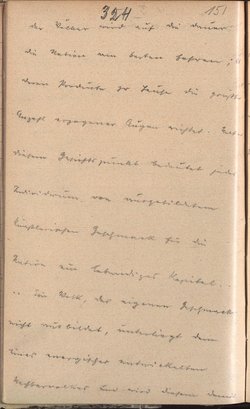 324 151
der Völker wird auf die Dauer
die Nation am besten fahren,
deren Produkte zu Hause die größte
Anzahl erzogener Augen richtet.
diesem Gesichtspunkt bedeutet jedes
Individuum von ausgebildetem
künstlerischen Geschmack für die
Nation ein lebendiges Kapital..
.. ein Volk, das eigenen Geschmack
nicht ausbildet, unterliegt dem
eines energischer entwickelten
Nachbarvolkes und wird diesem